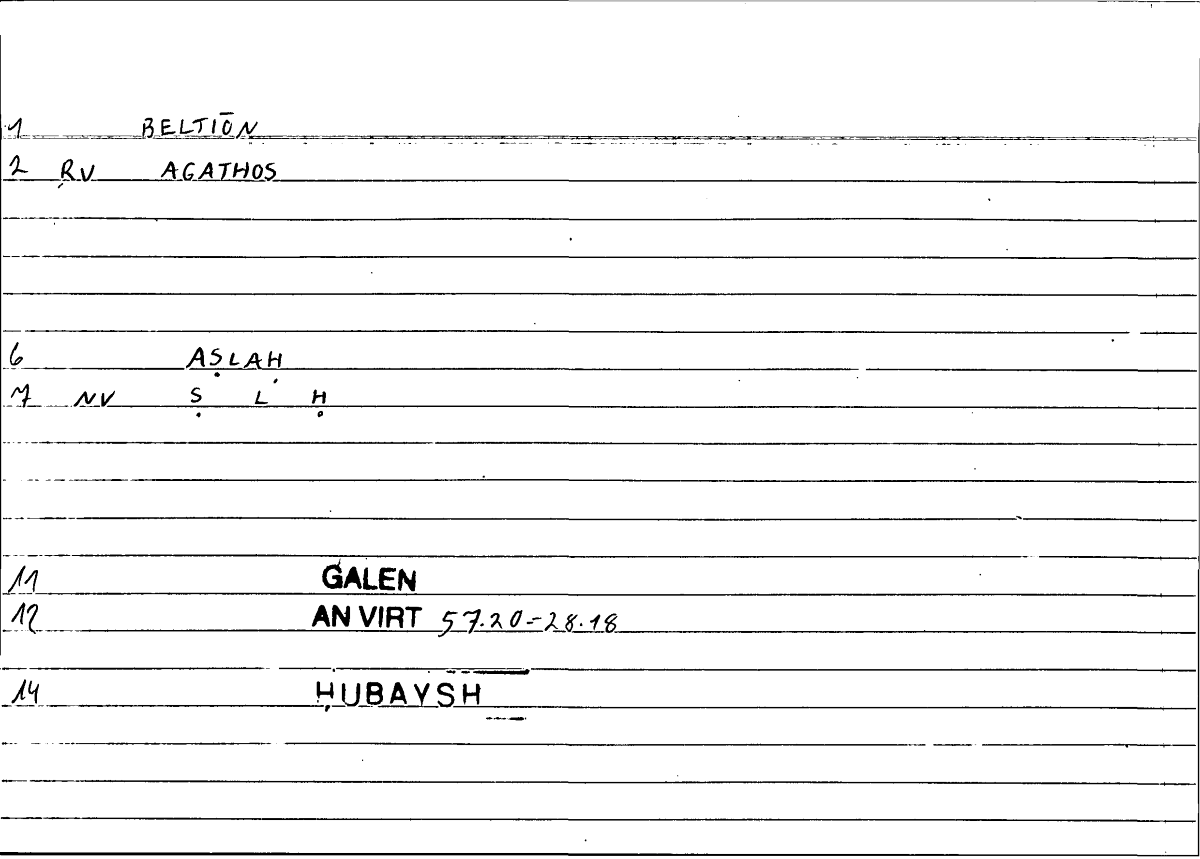 1 BELTIŌN
2 ṚV AGATHOS
6 AṢLAḤ
7 NV Ṣ L Ḥ
11 GALEN
12 AN VIRT 57.20-28.18
14 ḤUBAYSH